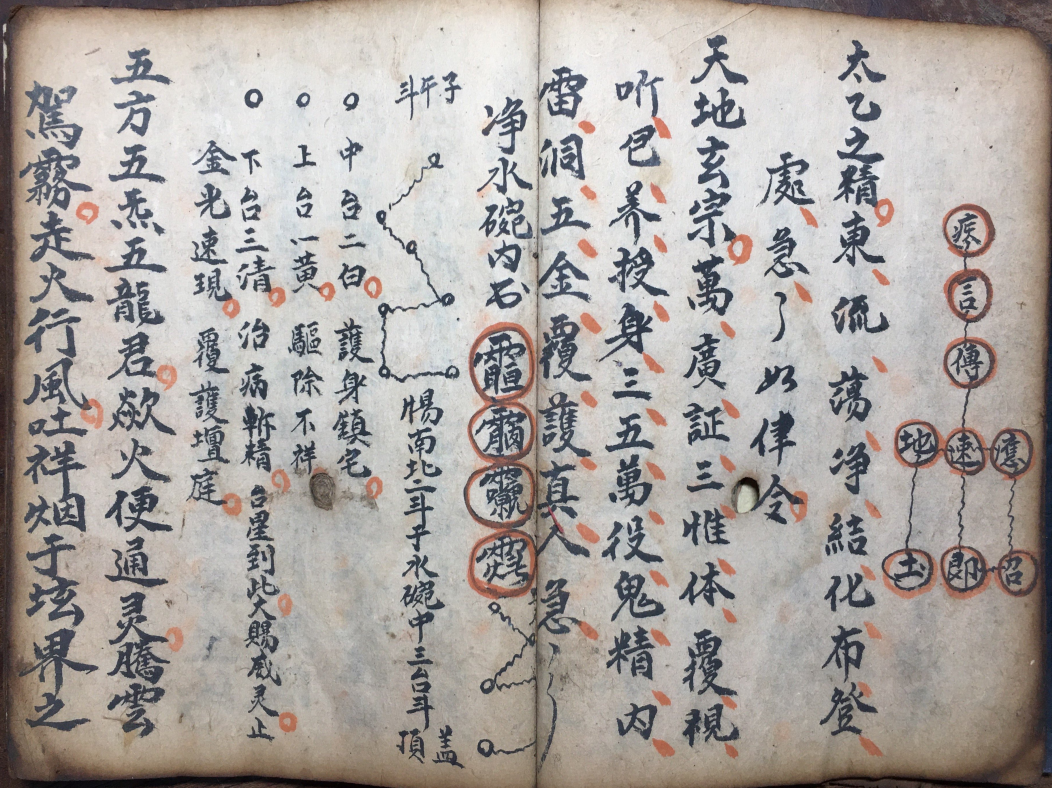 疼
言
傳
應 速 地
召 即 土
太乙之精東流蕩净結化布登
處急〻如律令
天地玄宗萬廣証三惟体覆視
听㐌养授身三五萬役鬼精内
雷洞五金覆護真人急〻
净水碗内
子午斗
賜南北二斗于水碗中三台斗
盖頂
中台二白護身鎮宅
上台一黄驅除不祥
下台三清治病斬精台星到此大賜威灵止
金光速現覆護壇庭
五方五炁五龍君歘火便通灵騰雲
駕霧走火行風吐祥烟于坛界之